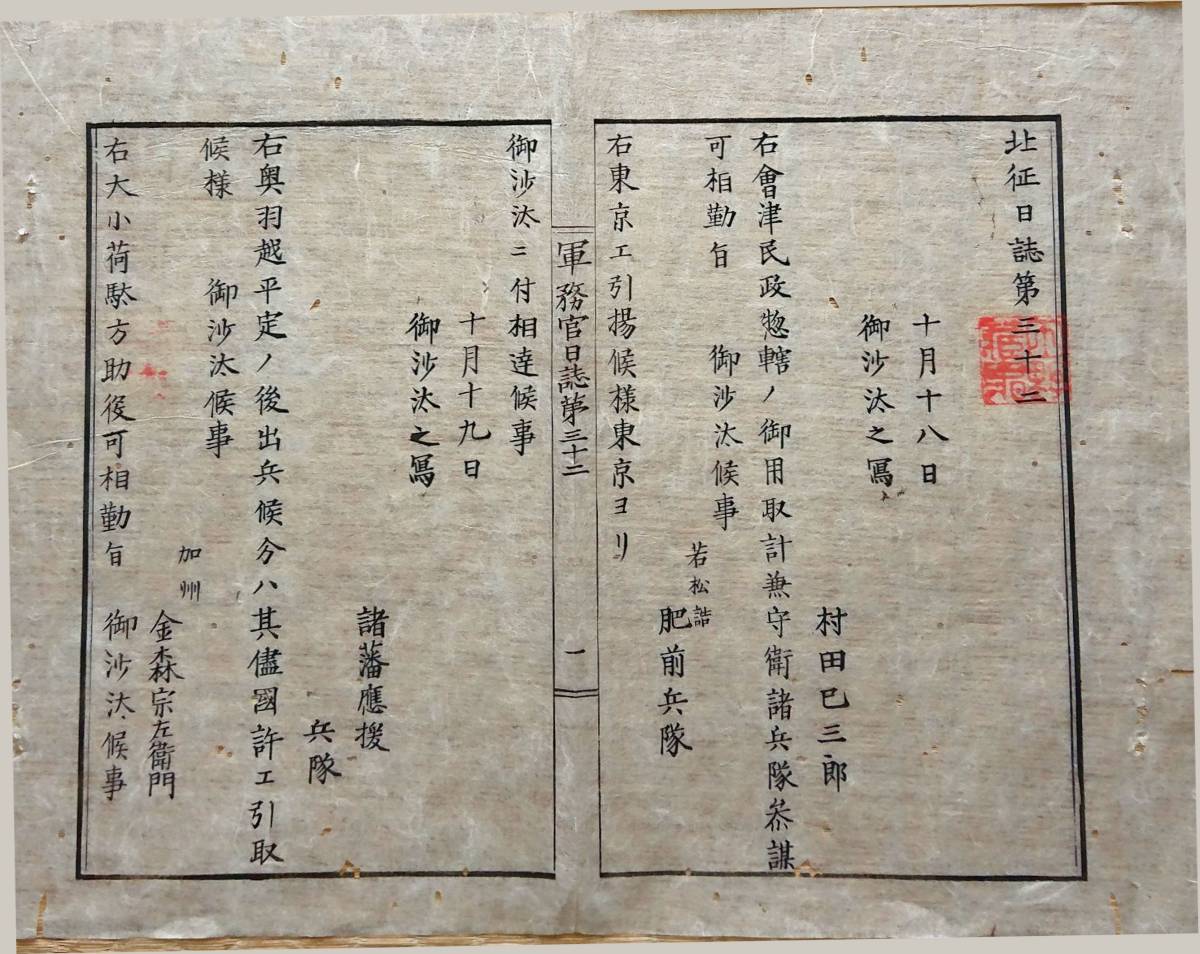 北征日誌第三十二
十月十八日
御沙汰之寫
村田巳三郎
右會津民政惣轄ノ御用取計兼守衛諸兵隊叅謀
可相勤旨　御沙汰候事
若松詰
肥前兵隊
右東京エ引揚候様東京ヨリ
軍務官日誌第三十二
一
御沙汰ニ付相達候事
十月十九日
御沙汰之寫
諸藩應援
兵隊
右奥羽越平定ノ後出兵候分ハ其儘國許エ引取
候様　御沙汰候事
加州
金森宗左衛門
右大小荷駄方助役可相勤旨　御沙汰候事